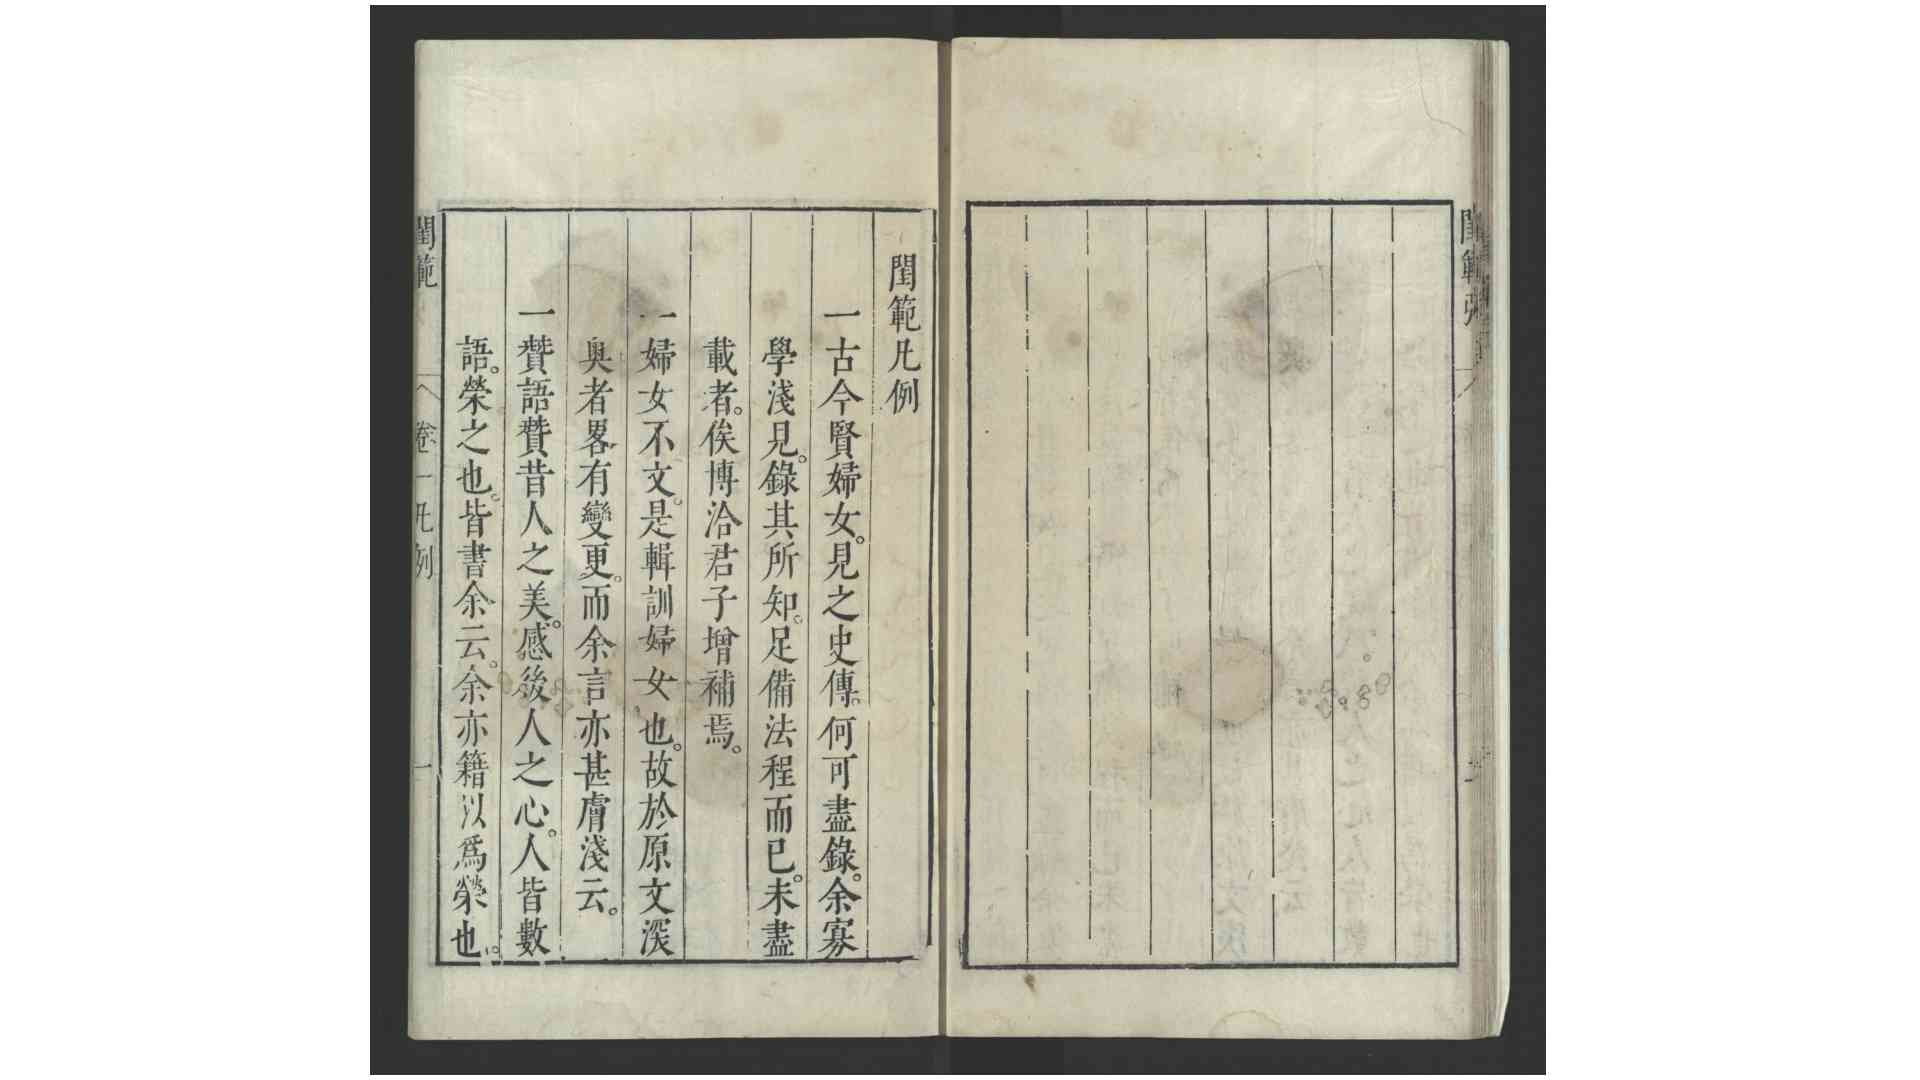 閨範
閨範凡例
一古今賢婦女。見之史傳。何可盡錄。余寡
學淺見。錄其所知。足備法程而已。未盡
載者。俟博洽君子增補焉。
一婦女不文。是輯訓婦女也。故於原文深
奥者畧有變更。而余言亦甚膚淺云。
一贊語贊昔人之美。感後人之心。人皆數
語。榮之也。皆書余云。余亦籍以爲榮也。
閨範
卷一凡例
一